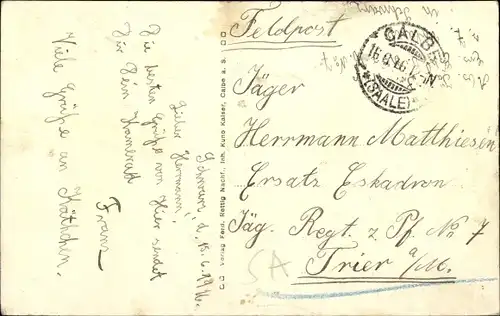 Schwarz, d. 15.6.1916.
Lieber Herrmann!
Die besten Grüße von hier sendet
Dir Dein Kamerad
Franz
Viele Grüße an Käthchen.
Verlag Ferd. Rettig Nachf., Inh. Kuno Kaiser, Calbe a. S.
Feldpost
CALBE
(SAALE)
Jäger
Herrmann Matthiesen
Ersatz Eskadron
Jäg. Regt. z. Pf. No 7
Trier a/M.
SA